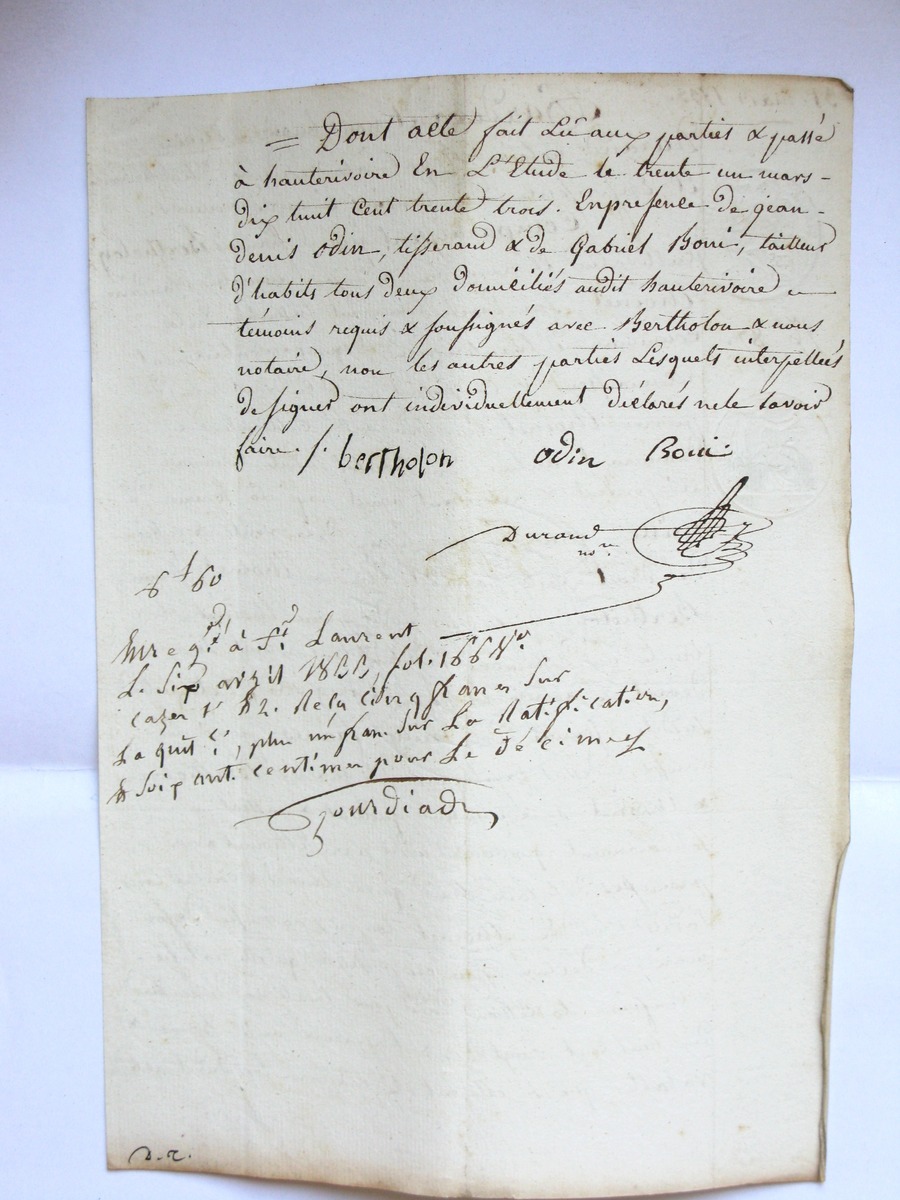 = Dont acte fait Lû aux parties & passé
à hauterivoire En L'Etude le trente un mars -
dix huit Cent trente trois. En presence de jean -
denis Odin, tisserand & de Gabriel Boni, tailleur
d'habits tous deux domiciliés audit hauterivoire
témoins requis & soussignés avec Bertholon & nous
notaire, non les autres parties Lesquels interpellés
de signer ont individuellement déclarés ne le savoir
faire ./. bertholon odin Boni
Durand
no.re
6 f 60
Enregt. à St. Laurent
Le Six avril 1833, fol. 166 Vo.
cazes 1 & 2. Reçu cinq francs sur
La quitce, plus un franc sur La Ratification,
& Soixante centimes pour Le Décimes
D. r.